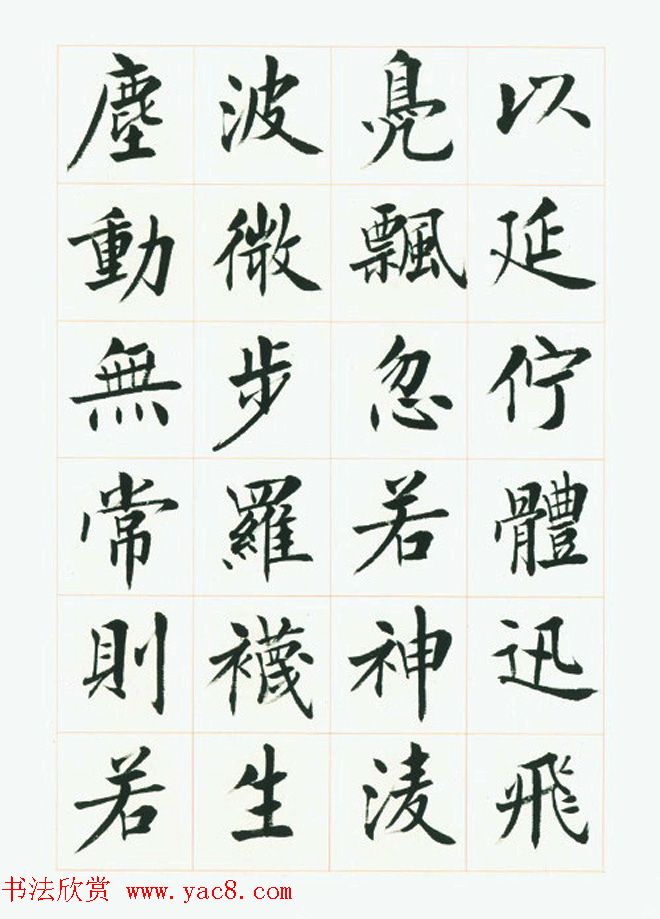 以延佇體迅飛
鳧飄忽若神淩
波微步羅襪生
塵動無常則若
书法欣赏 www.yac8.com